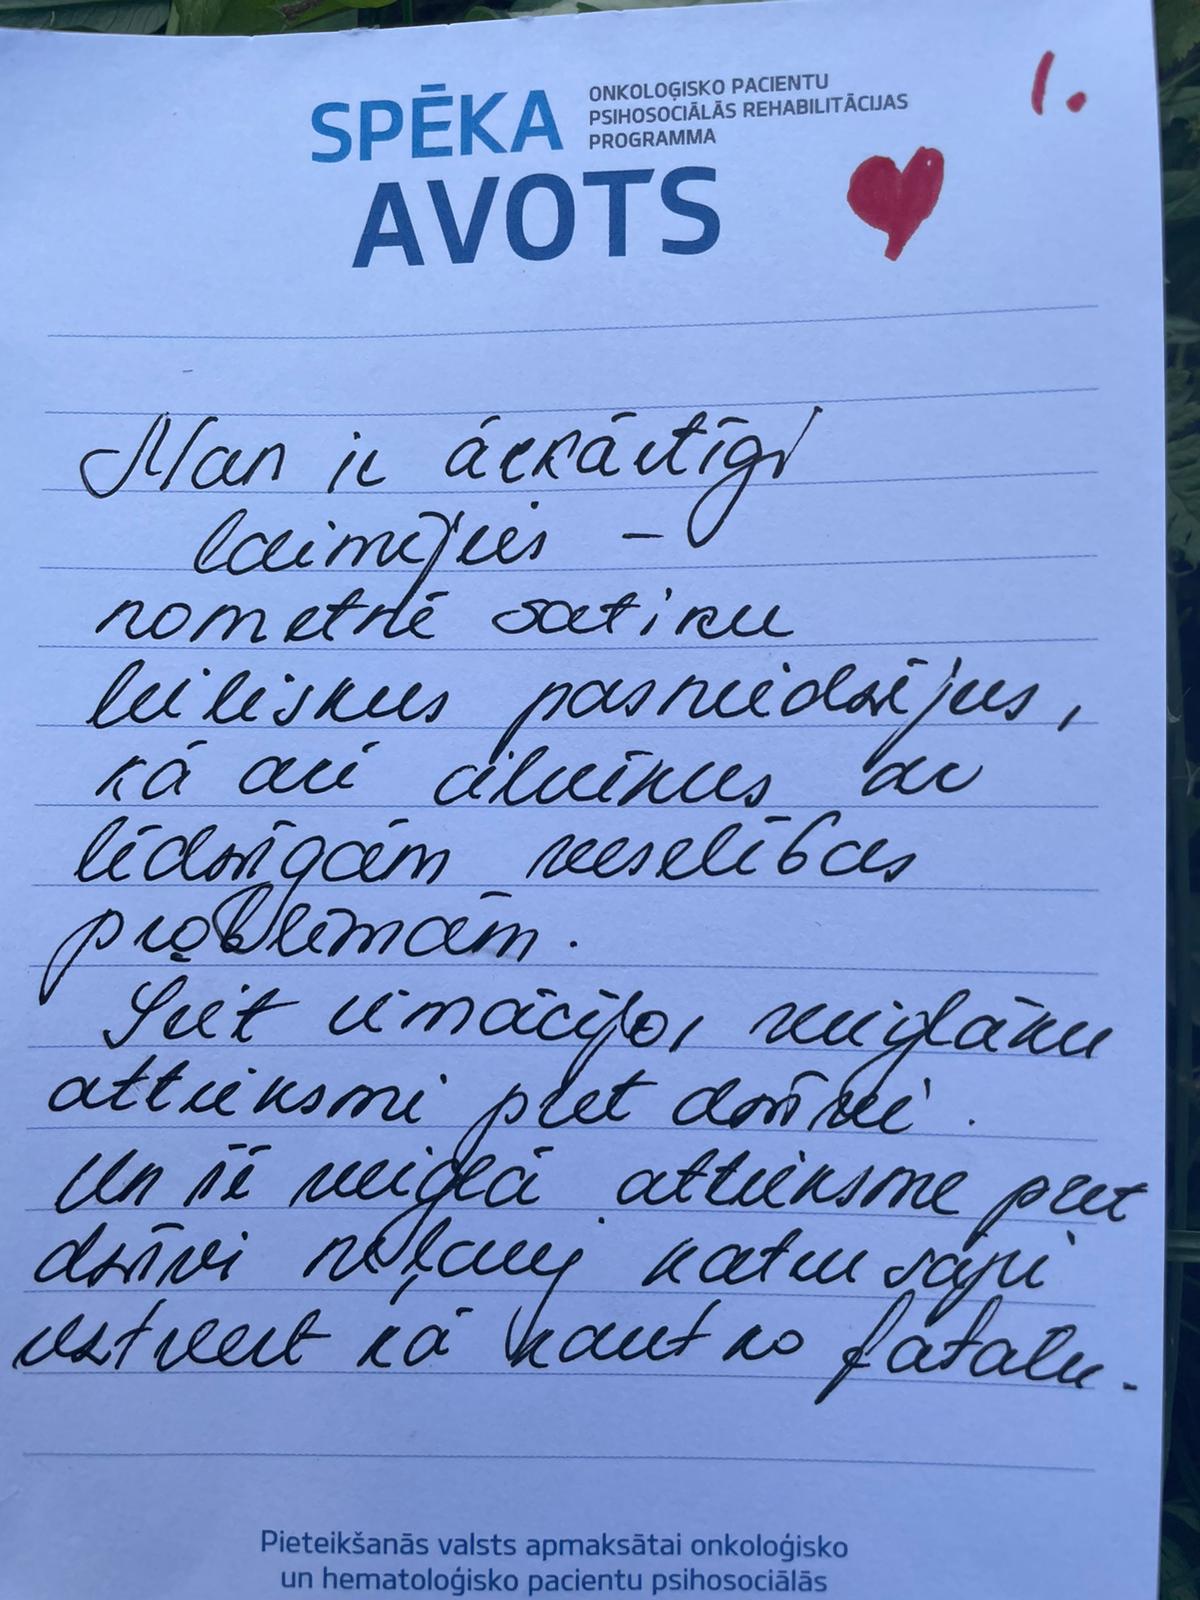 SPĒKA
AVOTS
ONKOLOĢISKO PACIENTU
PSIHOSOCIĀLĀS REHABILITĀCIJAS
PROGRAMMA
1.
Man ir ārkārtīgi
laimējies -
nometnē satiku
lieliskus pasniedzējus,
kā arī cilvēkus ar
līdzīgām veselības
problēmām.
Šeit iemācījos vieglāku
attieksmi pret dzīvi.
Un šī vieglā attieksme pret
dzīvi neļauj katru sāpi
uztvert kā kaut ko fatālu.
Pieteikšanās valsts apmaksātai onkoloģisko
un hematoloģisko pacientu psihosociālās